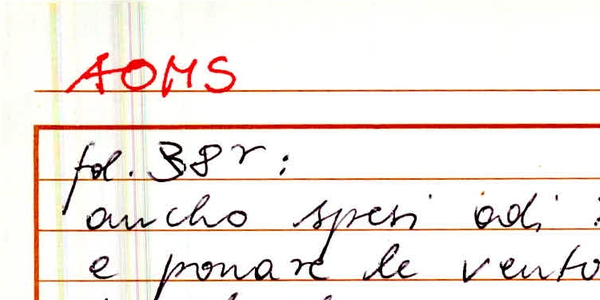 AOMS
fol. 38r:
ancho spesi adi :
e ponare le vento